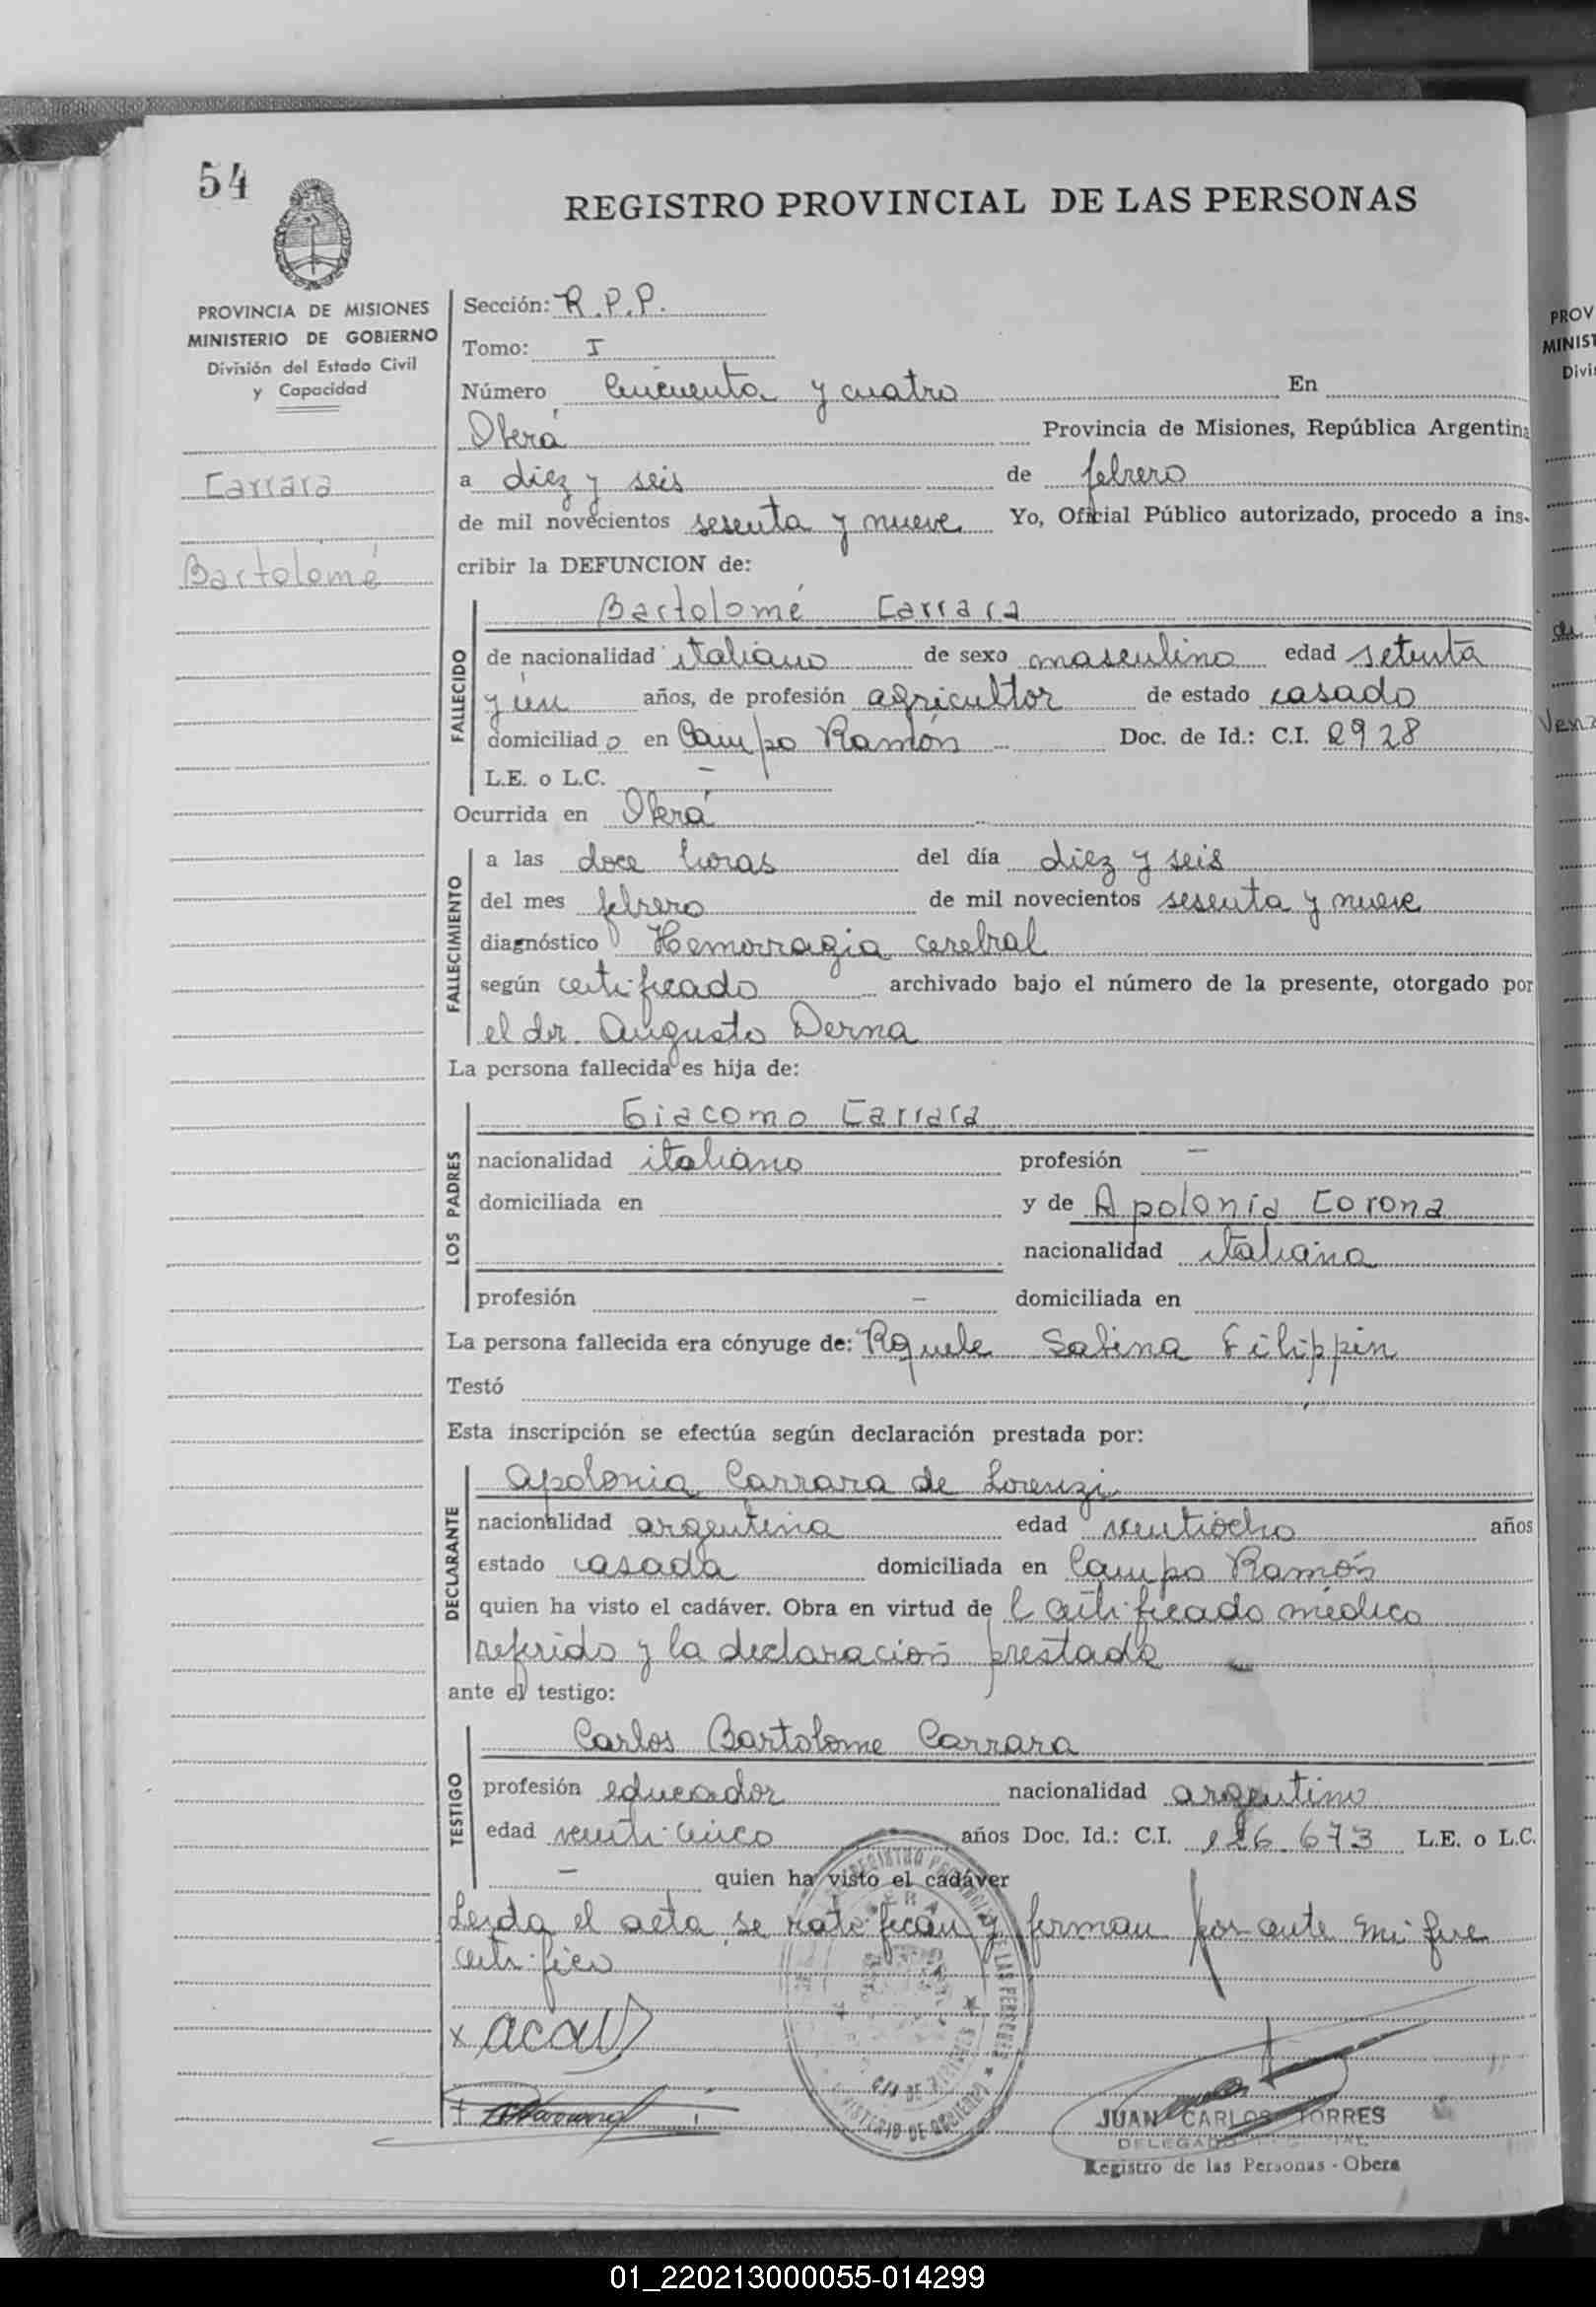 54
REGISTRO PROVINCIAL DE LAS PERSONAS
PROVINCIA DE MISIONES
MINISTERIO DE GOBIERNO
División del Estado Civil
y Capacidad
Carrara
Bartolomé
Sección: R.P.P.
Tomo: I
Número Cincuenta y cuatro En
Oberá Provincia de Misiones, República Argentina
a diez y seis de febrero
de mil novecientos sesenta y nueve Yo, Oficial Público autorizado, procedo a ins-
cribir la DEFUNCION de:
FALLECIDO
Bartolomé Carrara
de nacionalidad italiano de sexo masculino edad setenta
y un años, de profesión agricultor de estado casado
domiciliado en Campo Ramón Doc. de Id.: C.I. 2928
L.E. o L.C. -
Ocurrida en Oberá
FALLECIMIENTO
a las doce horas del día diez y seis
del mes febrero de mil novecientos sesenta y nueve
diagnóstico Hemorragia cerebral
según certificado archivado bajo el número de la presente, otorgado por
el dr. Augusto Derna
La persona fallecida es hija de:
LOS PADRES
Giacomo Carrara
nacionalidad italiano profesión -
domiciliada en y de Apolonia Corona
nacionalidad italiana
profesión - domiciliada en
La persona fallecida era cónyuge de: Rquele Sabina Filippin
Testó
Esta inscripción se efectúa según declaración prestada por:
DECLARANTE
Apolonia Carrara de Lorenzi
nacionalidad argentina edad ventiocho años
estado casada domiciliada en Campo Ramón
quien ha visto el cadáver. Obra en virtud de l certificado médico
referido y la declaración prestada
ante el testigo:
TESTIGO
Carlos Bartolome Carrara
profesión educador nacionalidad argentino
edad venti cinco años Doc. Id.: C.I. 126.673 L.E. o L.C.
- quien ha visto el cadáver
Leida el acta se ratifican y firman por ante mi que
certifico
JUAN CARLOS TORRES
Registro de las Personas - Obera
PROV
MINIST
Divi
01_220213000055-014299